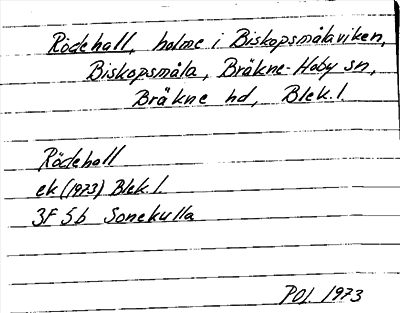 Rödehall, holme i Biskopsmålaviken,
Biskopsmåla, Bräkne-Hoby sn,
Bräkne hd, Blek. l.
Rödehall
ek (1973) Blek. l.
3F 5b Sonekulla
POL. 1973